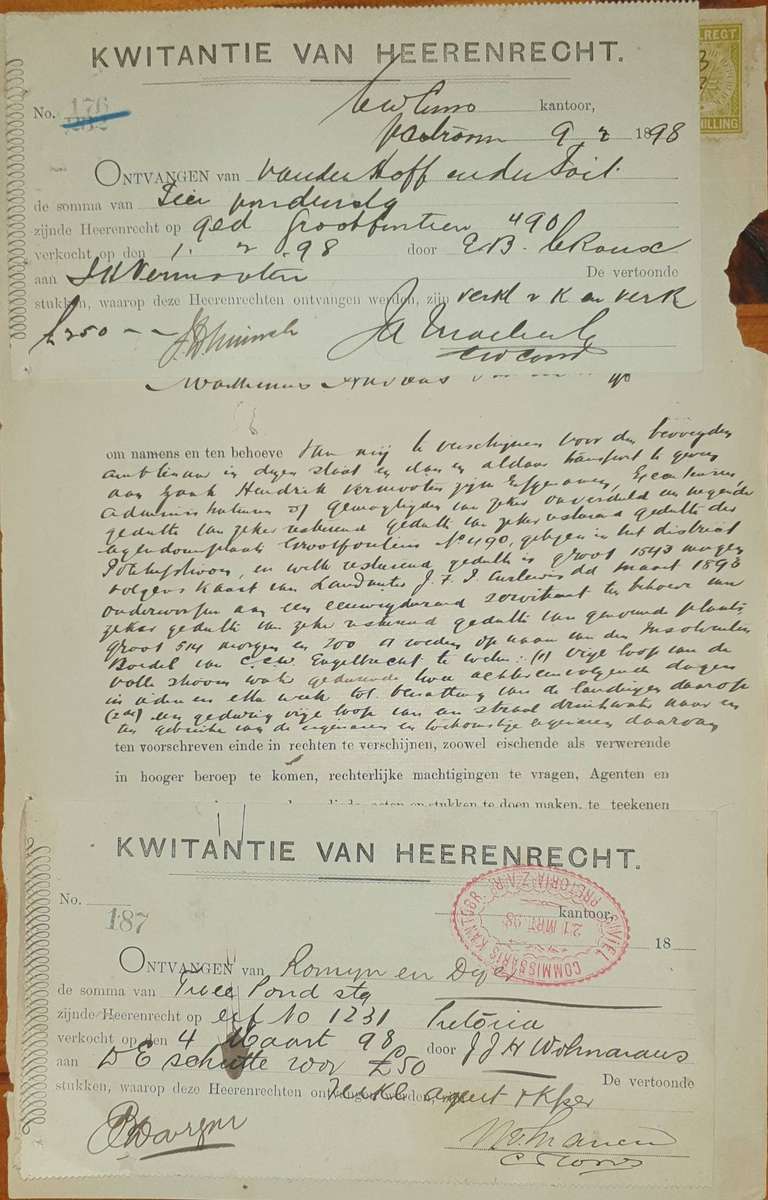 KWITANTIE VAN HEERENRECHT.
No. 176
kantoor,
9 2 1898
ONTVANGEN van van der Hoff en du Toit
de somma van Tien pondenstg
zijnde Heerenrecht op ged Grootfontein 490
verkocht op den 1 2 98 door E.B. le Roux
aan J H Vermooten De vertoonde
stukken, waarop deze Heerenrechten ontvangen werden, zijn verkl v K en verk
£250 - -
LREGT
ILLING
om namens en ten behoeve van mij te verschijnen voor den bevoegden
ambtenaar in dezen staat en dan en aldaar transport te geven
aan Hendrik Vermooten zijn Erfgenamen, Executeuren
Administrateuren of gemagtigden van zeker onverdeeld
gedeelte van zeker resterend gedeelte van zeker resterend gedeelte der
Grootfontein No 490, gelegen in het district
Potchefstroom, en welk resterend gedeelte is groot 1543 morgen
volgens Kaart van Landmeter J. F. Curlewis dd Maart 1893
onderworpen aan een eeuwigdurend servituut ten behoeve van
zeker gedeelte van zeker resterend gedeelte van genoemd plaats
groot 514 morgen en 200 roeden op naam van den Insolventen
Boedel van C.C.W. Engelbrecht te weten: (1) vrije loop van de
volle stroom water gedurende twee achtereenvolgende dagen
in iedere week tot van de landerijen daarop
(2de) een gedurig vrije loop van een straal drinkwater naar en
ten gebruike van de eigenaren en toekomstige eigenaren daarvan
ten voorschreven einde in rechten te verschijnen, zoowel eischende als verwerende
in hooger beroep te komen, rechterlijke machtigingen te vragen, Agenten en
en stukken te doen maken, te teekenen
KWITANTIE VAN HEERENRECHT.
No. 187
kantoor,
18
CIVIEL COMMISSARIS KANTOOR PRETORIA Z.A.R.
21 MRT. 98
ONTVANGEN van Romyn en Dyer
de somma van Twee Pond stg
zijnde Heerenrecht op erf No 1231 Pretoria
verkocht op den 4 Maart 98 door J J H Wolmarans
aan D E Schutte voor £50 De vertoonde
stukken, waarop deze Heerenrechten ontvangen werden, zijn verkl agent & Kper